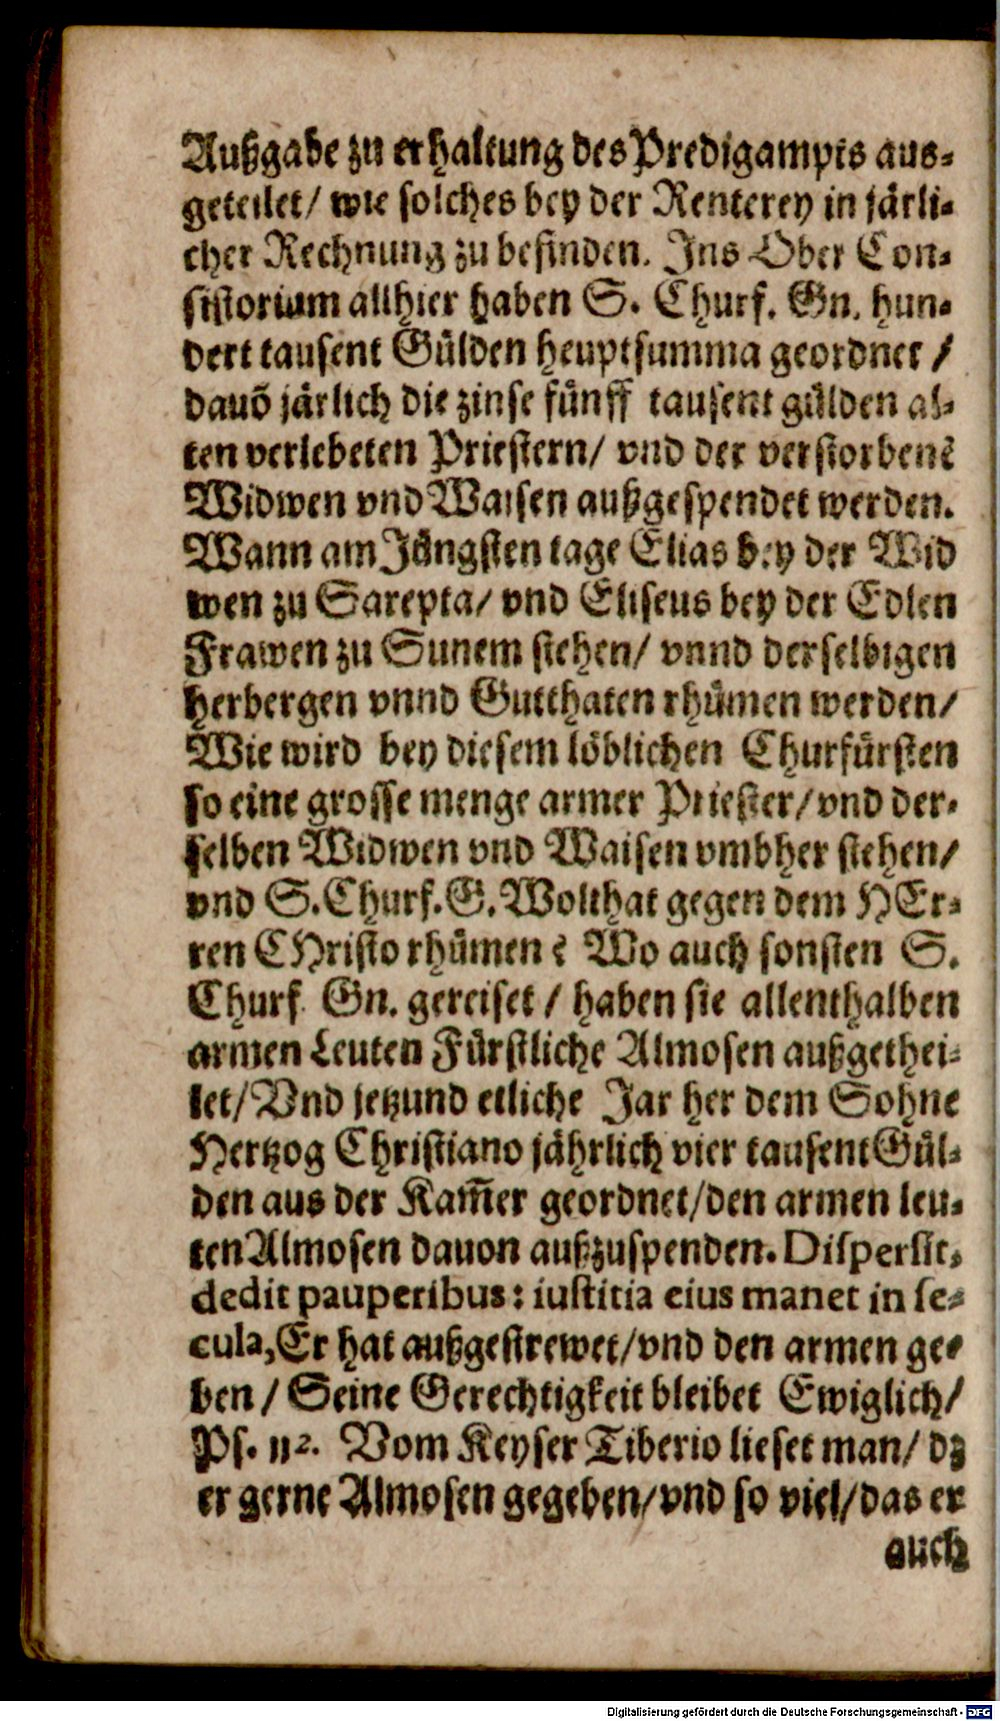 Außgabe zu erhaltung des Predigampts aus-
geteilet/ wie solches bey der Renterey in järli-
cher Rechnung zu befinden. Ins Ober Con-
sistorium allhier haben S. Churf. Gn. hun-
dert tausent Gülden heuptsumma geordnet /
dauõ järlich die zinse fünff tausent gülden al-
ten verlebeten Priestern/ vnd der verstorbenẽ
Widwen vnd Waisen außgespendet werden.
Wann am Jüngsten tage Elias bey der Wid
wen zu Sarepta/ vnd Eliseus bey der Edlen
Frawen zu Sunem stehen/ vnnd derselbigen
herbergen vnnd Gutthaten rhümen werden/
Wie wird bey diesem löblichen Churfürsten
so eine grosse menge armer Priester/ vnd der-
selben Widwen vnd Waisen vmbher stehen/
vnd S. Churf. G. Wolthat gegen dem HEr-
ren CHristo rhümen? Wo auch sonsten S.
Churf. Gn. gereiset / haben sie allenthalben
armen Leuten Fürstliche Almosen außgethei-
let/ Vnd jetzund etliche Jar her dem Sohne
Hertzog Christiano jährlich vier tausent Gül-
den aus der Kam̃er geordnet/ den armen leu-
ten Almosen dauon außzuspenden. Dispersit,
dedit pauperibus: iustitia eius manet in se-
cula, Er hat außgestrewet/ vnd den armen ge-
ben / Seine Gerechtigkeit bleibet Ewiglich/
Ps. 112. Vom Keyser Tiberio lieset man/ dz
er gerne Almosen gegeben/ vnd so viel/ das er
auch
Digitalisierung gefördert durch die Deutsche Forschungsgemeinschaft - DFG